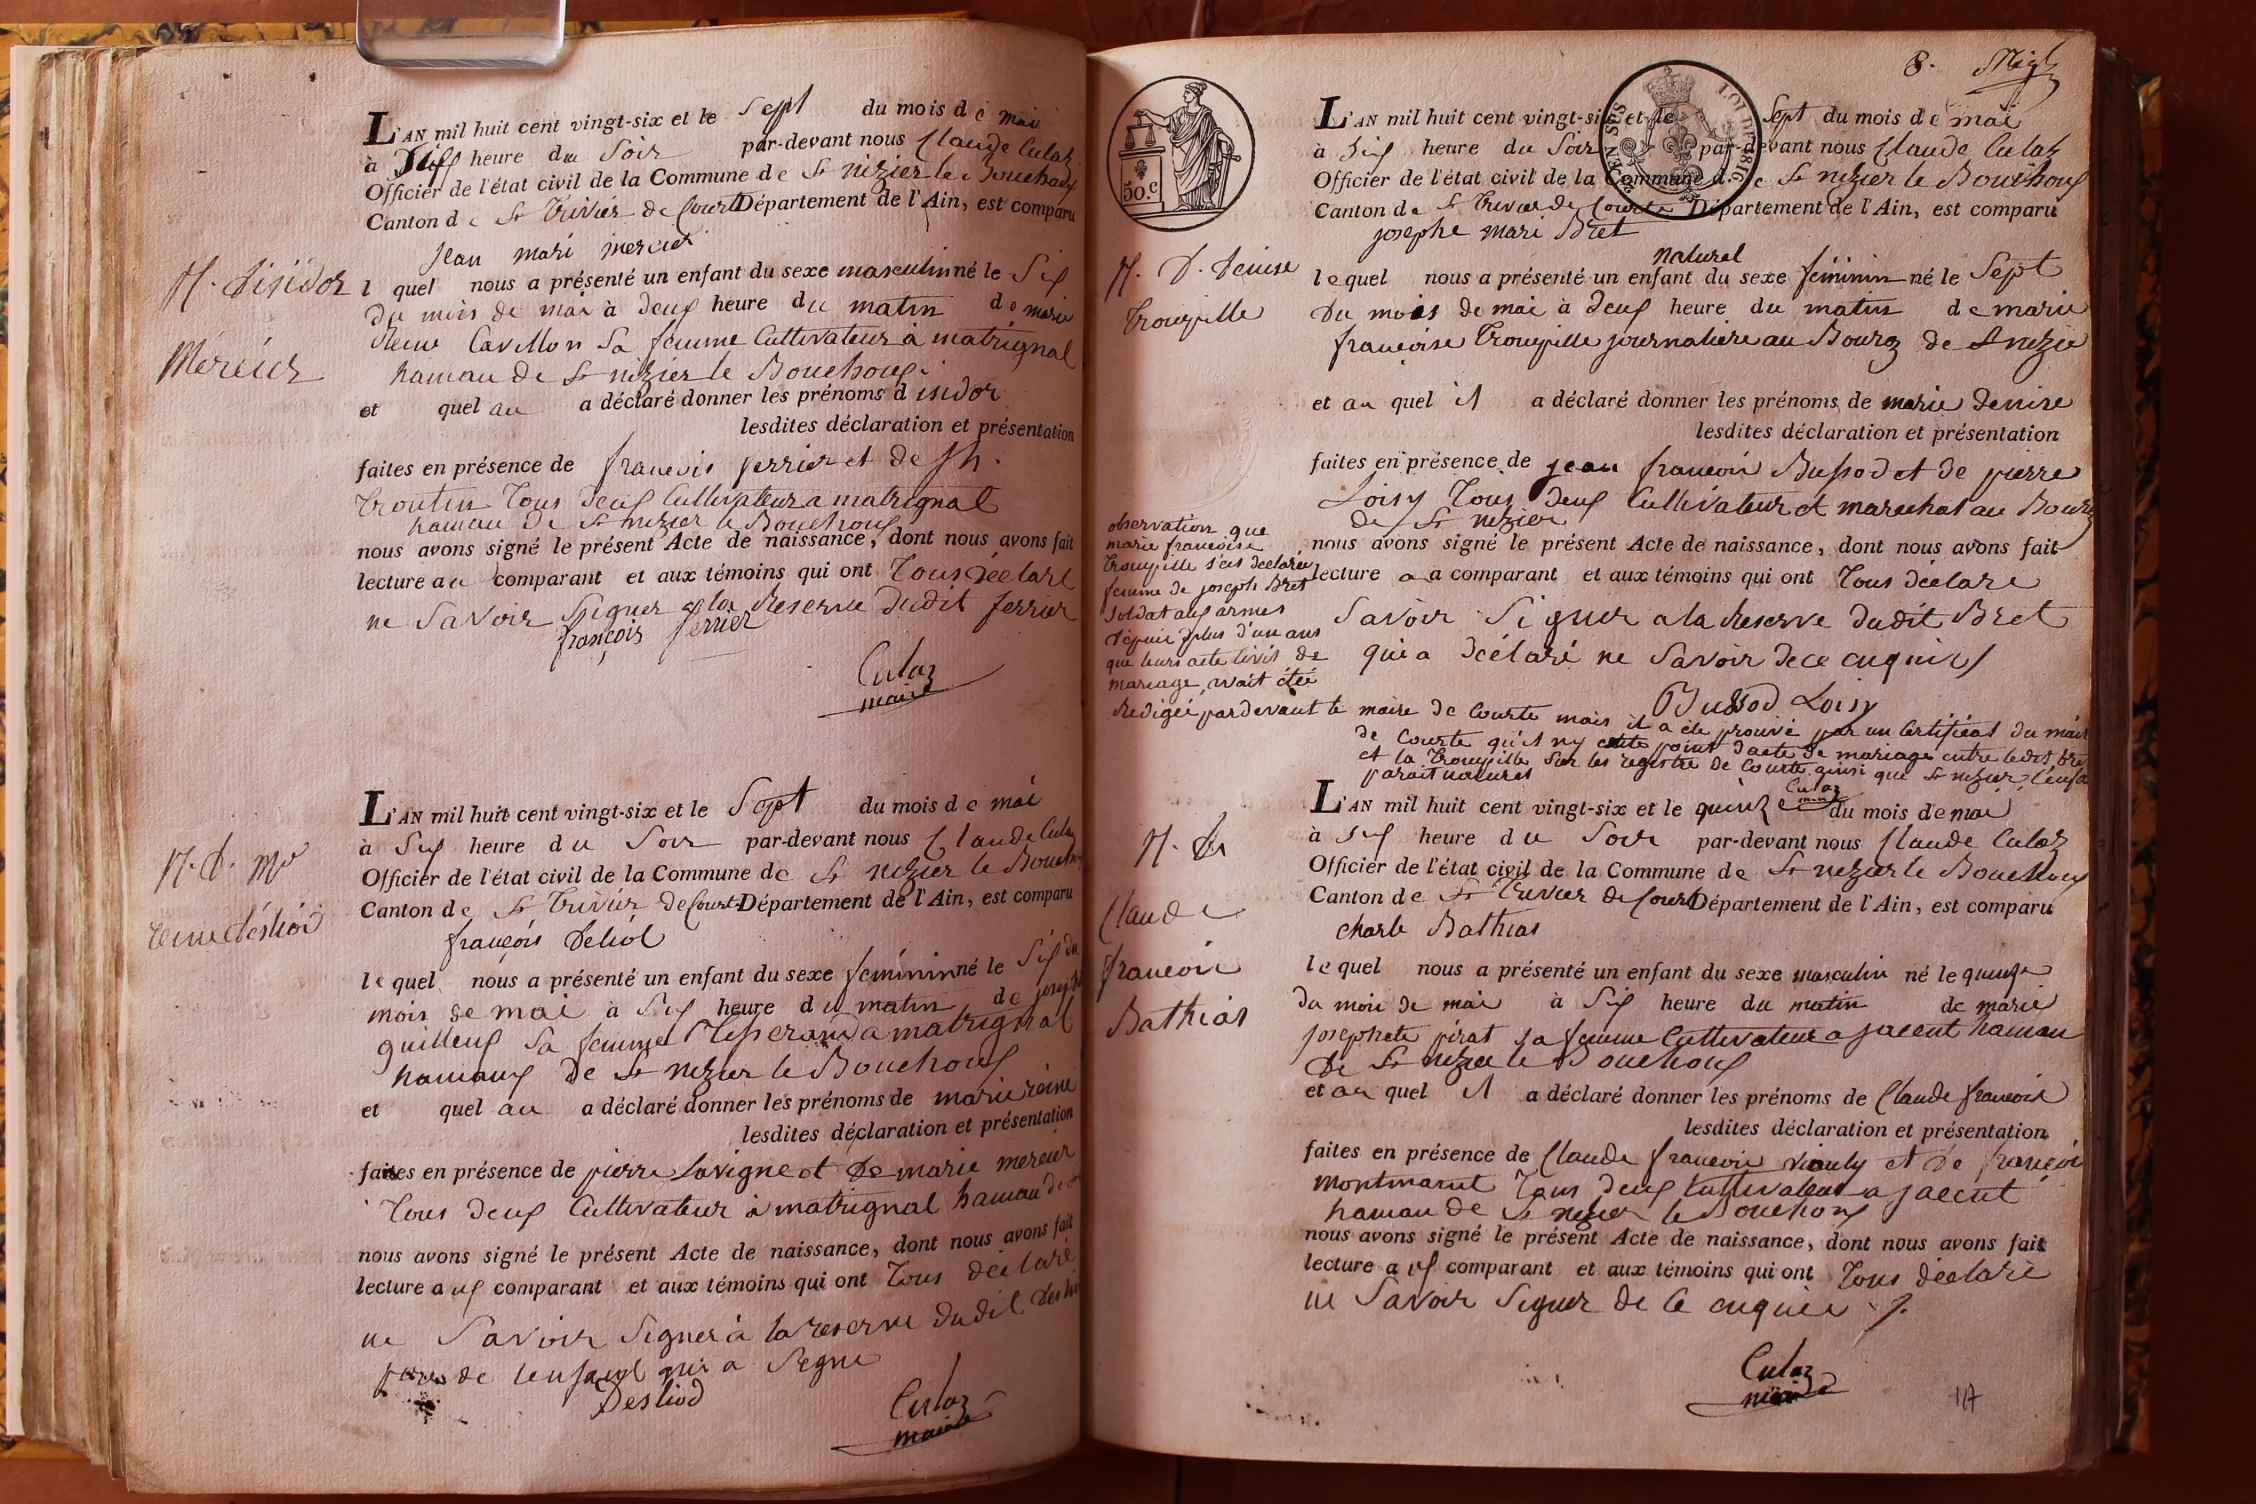 N. d'isidor
Mercier
L'AN mil huit cent vingt-six et le Sept du mois de mai
à Six heure du Soir par-devant nous Claude Culaz
Officier de l'état civil de la Commune de St nizier le Bouchoux
Canton de St Trivier de Courte Département de l'Ain, est comparu
Jean mari mercier
l quel nous a présenté un enfant du sexe masculin né le Six
du mois de mai à deux heure du matin de marie
Reine Cavillon Sa femme Cultivateur à matrignal
hamau de St nizier le Bouchoux
et quel au a déclaré donner les prénoms d isidor
lesdites déclaration et présentation
faites en présence de francois ferrier et de Jh.
Troutin Tous deux Cultivateur a matrignal
hamau de St nizier le Bouchoux
nous avons signé le présent Acte de naissance, dont nous avons fait
lecture au comparant et aux témoins qui ont Tous déclaré
ne Savoir Signer a la Reserve dudit ferrier
françois ferrier
Culaz
maire
N. d. me
reine desliod
L'AN mil huit cent vingt-six et le Sept du mois de mai
à Six heure du Soir par-devant nous Claude Culaz
Officier de l'état civil de la Commune de St nizier le Bouchoux
Canton de St Trivier de Courte Département de l'Ain, est comparu
françois deliot
le quel nous a présenté un enfant du sexe féminin né le Six du
mois de mai à Six heure du matin de
Sa femme a matrignal
hamaux de St nizier le Bouchoux
et quel au a déclaré donner les prénoms de marie reine
lesdites déclaration et présentation
faites en présence de pierre Lavigne et de marie mercier
Tous deux Cultivateur à matrignal hamau de
nous avons signé le présent Acte de naissance, dont nous avons fait
lecture a ux comparant et aux témoins qui ont Tous déclaré
ne Savoir Signer à la reserve dudit
pere de lenfant qui a Signe
Desliod
Culaz
maire
8.
50.c
N. d. denise
Trouille
L'AN mil huit cent vingt-six et le Sept du mois de mai
à Six heure du Soir par-devant nous Claude Culaz
Officier de l'état civil de la Commune de St nizier le Bouchoux
Canton de St Trivier de Courte Département de l'Ain, est comparu
josephe mari Bret
naturel
le quel nous a présenté un enfant du sexe féminin né le Sept
du mois de mai à deux heure du matin de marie
françoise journaliere au Bourg de St nizie
et au quel il a déclaré donner les prénoms de marie denise
lesdites déclaration et présentation
faites en présence de jean francois Bussod et de pierre
Loisy Tous deux Cultivateur et marechal au Bourg
de St nizier
nous avons signé le présent Acte de naissance, dont nous avons fait
lecture a a comparant et aux témoins qui ont Tous déclare
Savoir Signer a la Reserve dudit Bret
qui a déclaré ne Savoir de ce enquis
Bussod Loisy
observation que
marie francoise
s'est declarée
femme de joseph Bret
soldat aux armes
depuis plus d'un ans
que leurs acte civil de
mariage avait étée
Redigée pardevant le maire de Courte mais il a ete prouvé par un Certificat du maire
de Courte qu'il ny point d'acte de mariage entre ledit bret
et la Sur les registre de Courte ainsi que St nizier, l'enfa
parait naturel
Culaz
maire
N. de
Claude
francois
Bathias
L'AN mil huit cent vingt-six et le quinze du mois de mai
à Six heure du Soir par-devant nous Claude Culaz
Officier de l'état civil de la Commune de St nizier le Bouchoux
Canton de St Trivier de Courte Département de l'Ain, est comparu
charle Bathias
le quel nous a présenté un enfant du sexe masculin né le quinze
du mois de mai à Six heure du matin de marie
josephete pirat sa femme Cultivateur a jacent hamau
de St nizier le Bouchoux
et au quel il a déclaré donner les prénoms de Claude francois
lesdites déclaration et présentation
faites en présence de Claude francois et de françois
Tous deux Cultivateur a jacent
hamau de St nizier le Bouchoux
nous avons signé le présent Acte de naissance, dont nous avons fait
lecture a ux comparant et aux témoins qui ont Tous déclaré
ne Savoir Signer de Ce enquis
Culaz
maire